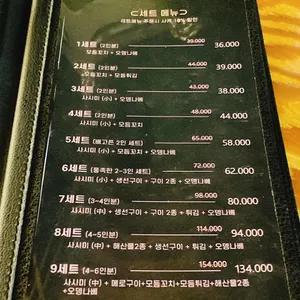 ⊂세트 메뉴⊃
세트메뉴 주문시 사케 10% 할인
1세트 (2인분) 39.000 36.000
모듬꼬치 + 오뎅나베
2세트 (2인분) 44.000 39.000
모듬꼬치 + 모듬튀김
3세트 (2인분) 43.000 38.000
사시미 (小) + 오뎅나베
4세트 (2인분) 48.000 44.000
사시미 (小) + 모듬꼬치
5세트 (배고픈 2인 세트) 65.000 58.000
사시미 (小) + 모듬꼬치 + 오뎅나베
6세트 (풍족한 2-3인 세트) 72.000 62.000
사시미 (小) + 생선구이 + 구이 2종 + 오뎅나베
7세트 (3-4인분) 98.000 80.000
사시미 (中) + 생선구이 + 구이 2종 + 튀김 + 오뎅나베
8세트 (4-5인분) 114.000 94.000
사시미 (中) + 해산물2종 + 생선구이 + 튀김 + 오뎅나베
9세트 (4-6인분) 154.000 134.000
사시미 (中) + 메로구이+모듬꼬치+모듬튀김+해산물2종
+오뎅나베